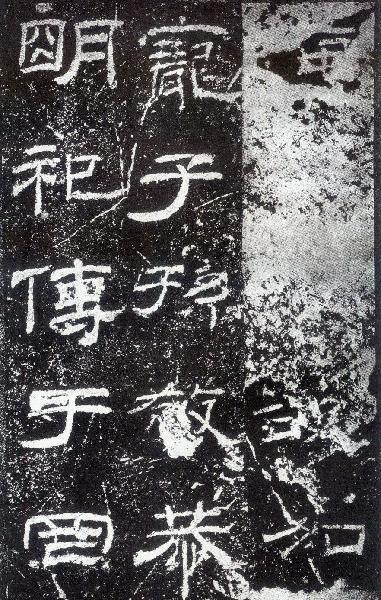 欲加
寵子孫敬恭
明祀傳于罔